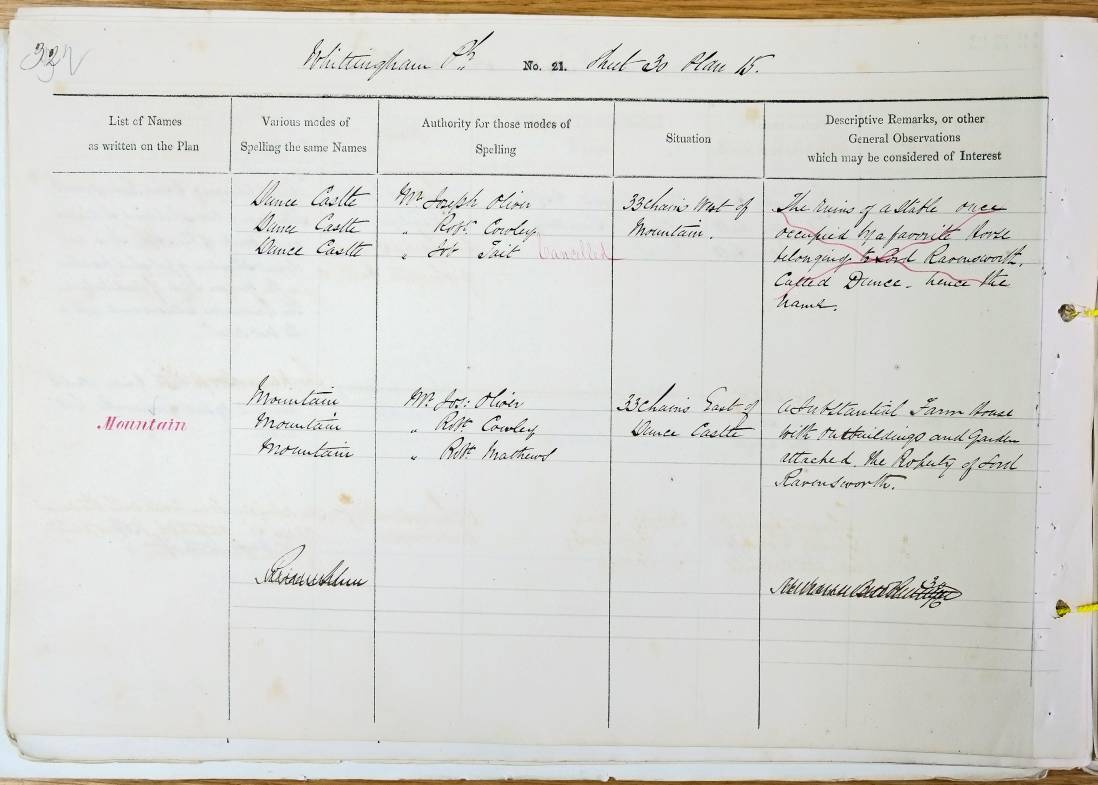 32
Whittingham Ph No. 21. Sheet 30 Plan 15.
List of Names
as written on the Plan
Various modes of
Spelling the same Names
Authority for those modes of
Spelling
Situation
Descriptive Remarks, or other
General Observations
which may be considered of Interest
Dance Castle
Dance Castle
Dance Castle
Mr. Joseph Oliver
" Robt. Cowley
" Jos Tait Cancelled
33 chains West of
Mountain.
The ruins of a Stable once
occupied by a favorite Horse
belonging to Lord Ravensworth.
Called Dance. hence the
name.
Mountain
Mountain
Mountain
Mountain
Mr. Jos: Oliver
" Robt. Cowley
" Robt. Mathews
33 chains East of
Dance Castle
A Substantial Farm House
with outbuildings and Garden
attached. The Property of Lord
Ravensworth.